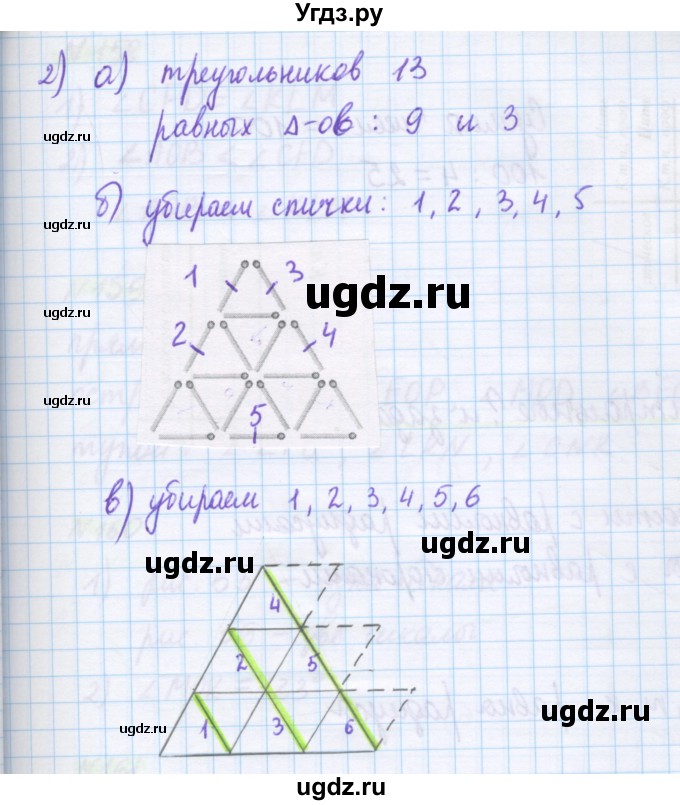 Угдз.ру
2) а) треугольников 13
равных Δ-ов : 9 и 3
ugdz.ru
ugdz.ru
б) убираем спички: 1, 2, 3, 4, 5
ugdz.ru
ugdz.ru
1 3
ugdz.ru
2 4
ugdz.ru
ugdz.ru
5
в) убираем 1, 2, 3, 4, 5, 6
ugdz.ru
ugdz.ru
ugdz.ru
4
2 5
ugdz.ru
1 3 6
ugdz.ru
ugdz.ru
ugdz.ru